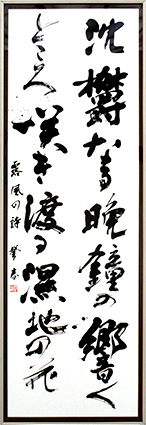 沈欝なる晩鐘の響く
ところへ咲き渡る濕地の花
露風の詩